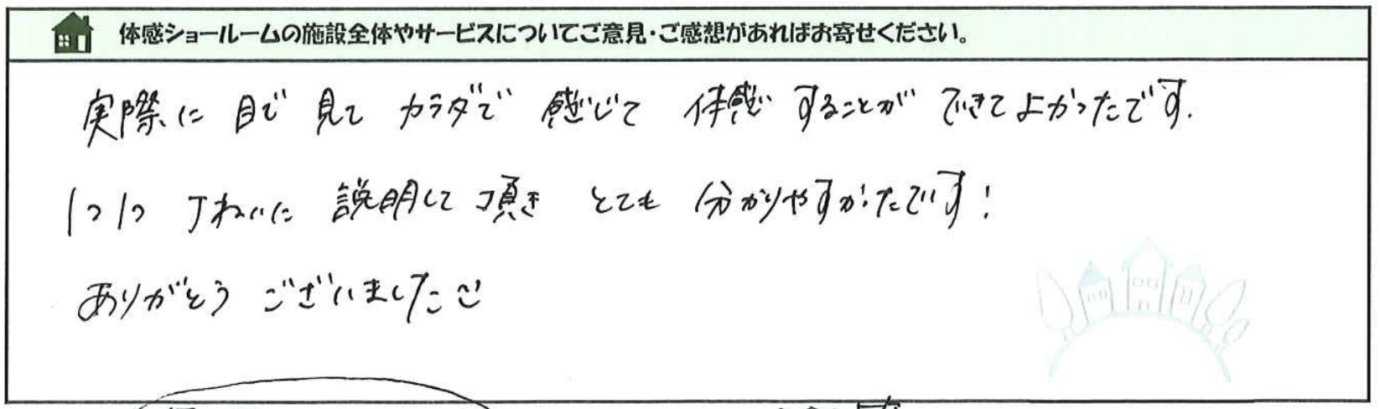 体感ショールームの施設全体やサービスについてご意見・ご感想があればお寄せください。
実際に 目で 見て カラダで 感じて 体感 することが できて よかったです.
1つ1つ 丁ねいに 説明して 頂き とても 分かりやすかったです!
ありがとう ございました